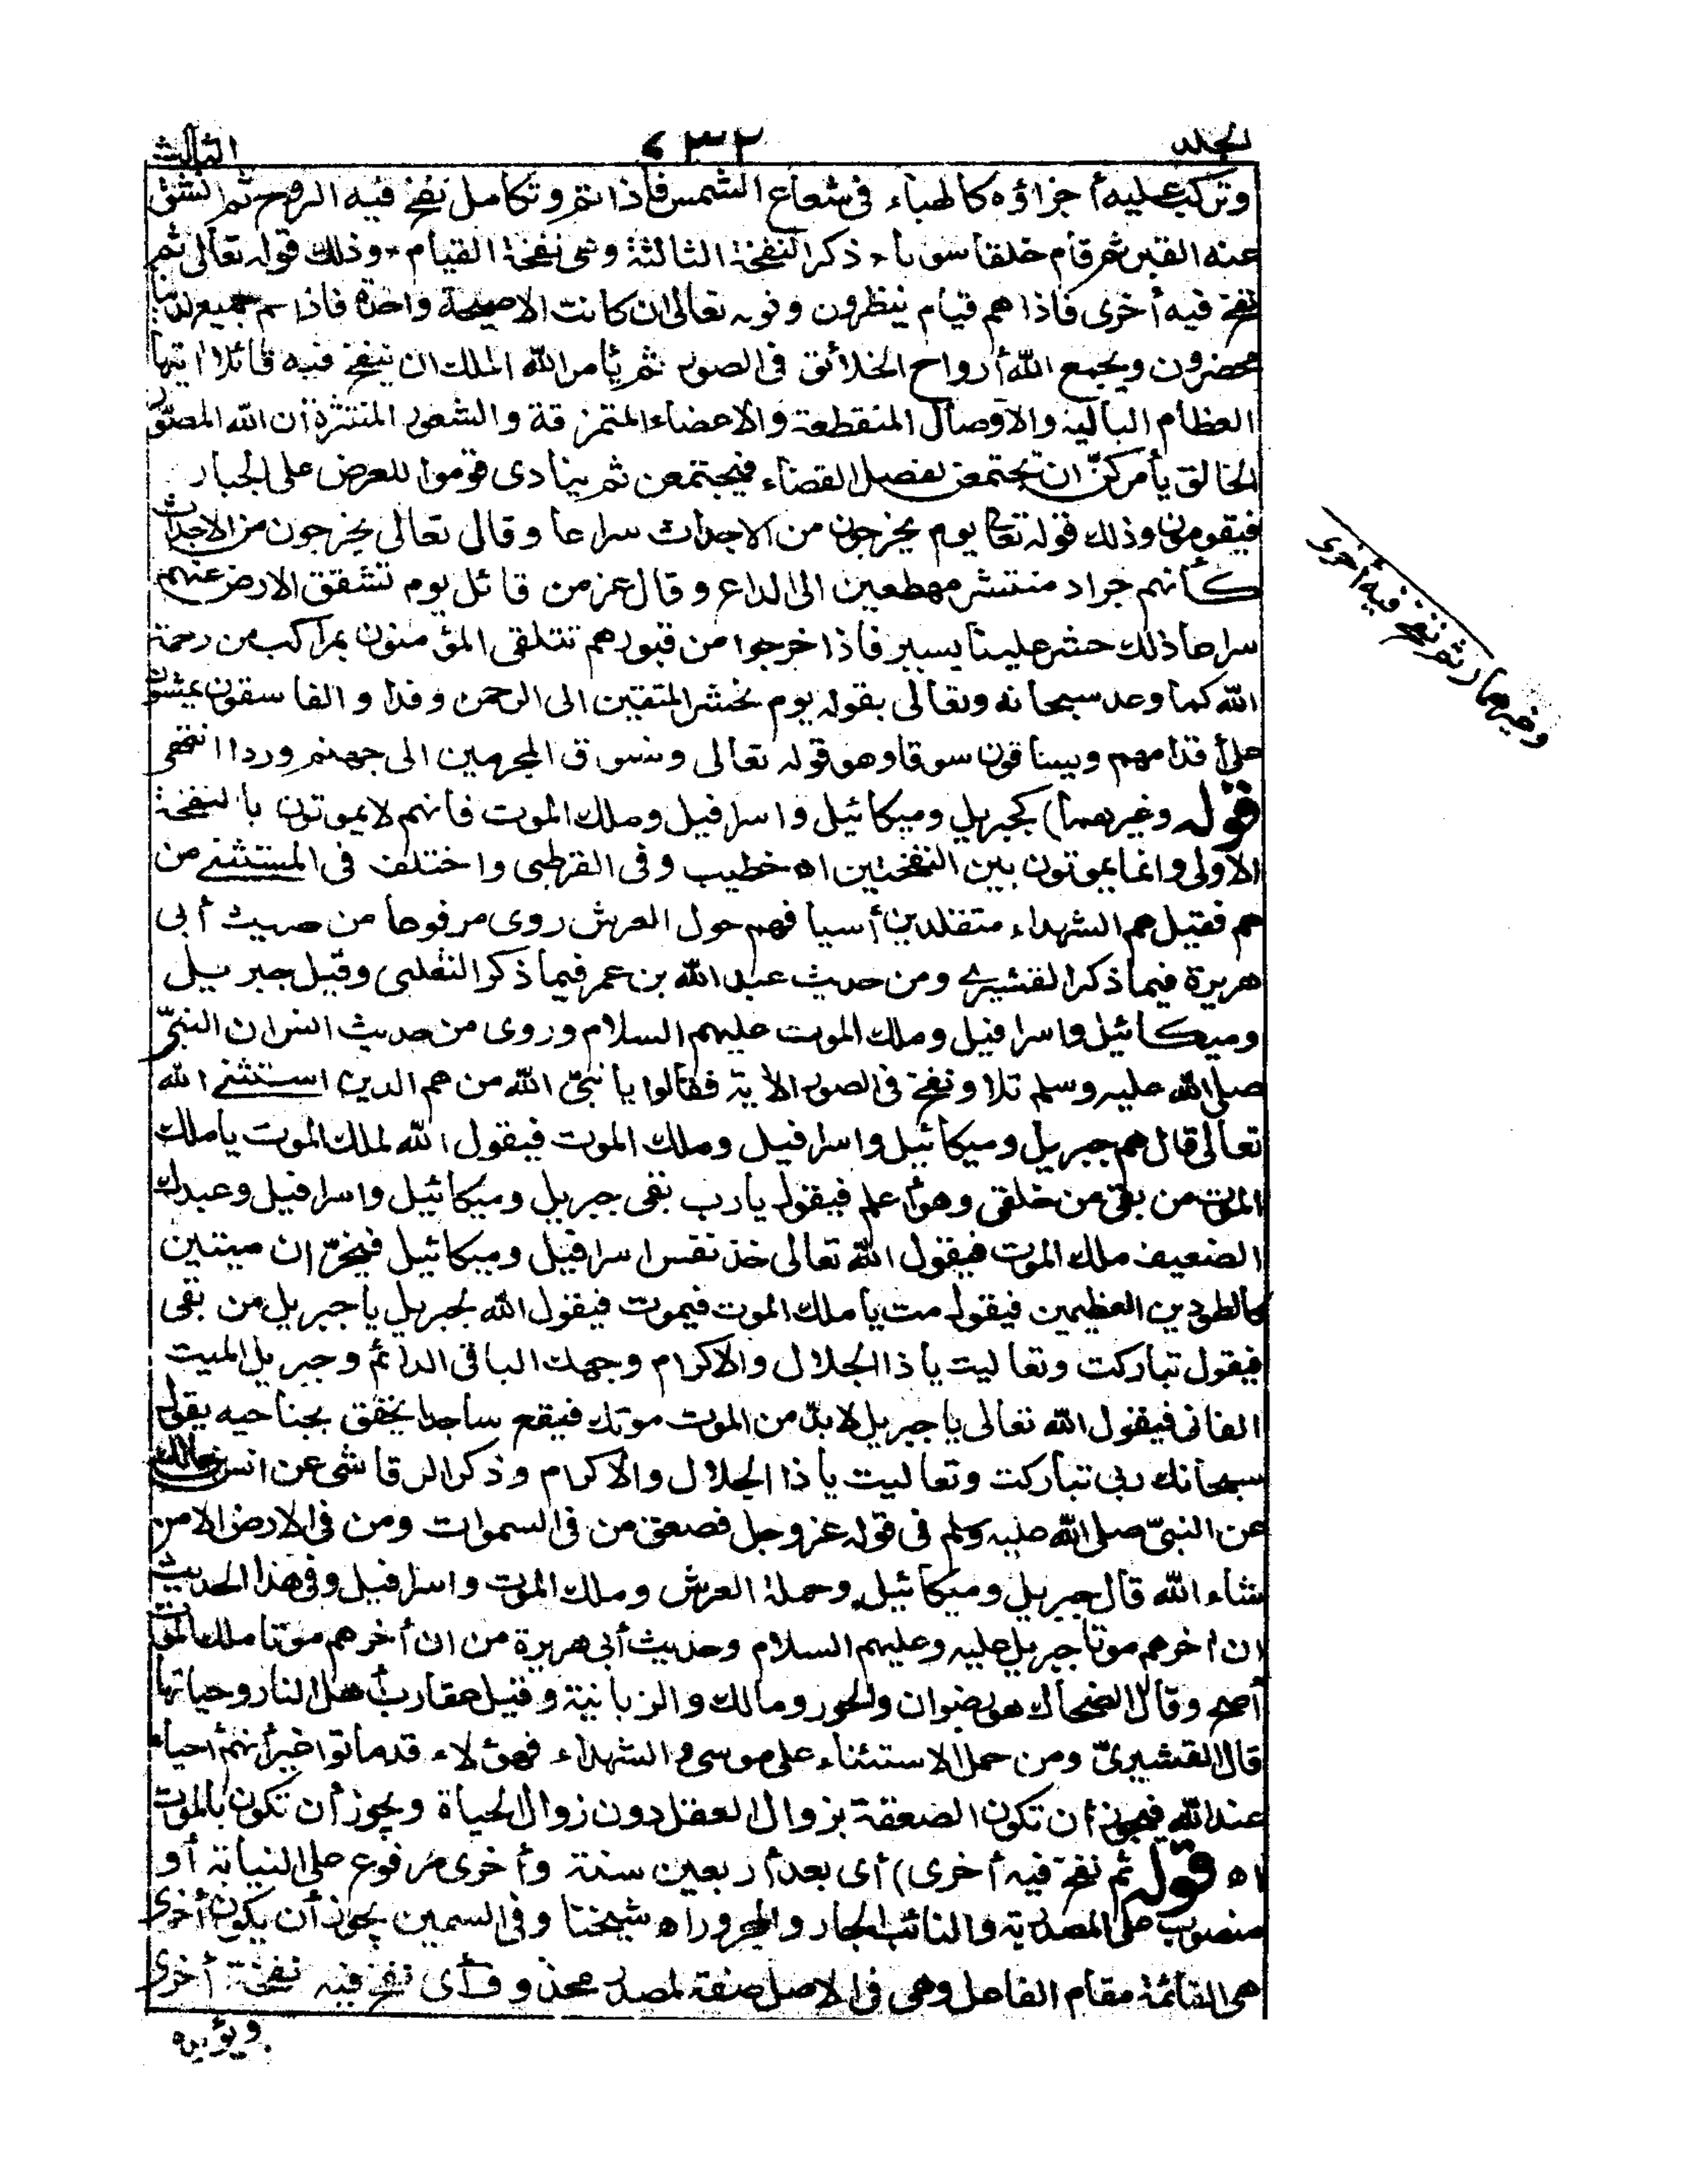 الجلد ٦٣٢ الثالث
وتركب عليه أجزاؤه كالهباء في شعاع الشمس فاذا تم وتكامل نفخ فيه الروح ثم انشق
عنه القبر ثم قام خلقا سويا، ذكر النفخة الثالثة وهي نفخة القيام، وذلك قوله تعالى ثم
نفخ فيه أخرى فاذا هم قيام ينظرون وقوله تعالى ان كانت الا صيحة واحدة فاذا هم جميع لدينا
محضرون ويجمع الله أرواح الخلائق في الصور ثم يأمر الله الملك ان ينفخ فيه قائلا ايتها
العظام البالية والاوصال المنقطعة والاعضاء المتمزقة والشعور المنتثرة أن الله المصور
الخالق يأمركنّ ان تجتمعن لفصل القضاء فيجتمعن ثم ينادى قوموا للعرض على الجبار
فيقومون وذلك قوله تعا يوم يخرجون من الاجداث سراعا وقال تعالى يخرجون من الاجداث
كأنهم جراد منتشر مهطعين الى الداع وقال عز من قائل يوم تشقق الارض عنهم
سراعا ذلك حشر علينا يسير فاذا خرجوا من قبورهم تتلقى المؤمنون بمراكب من رحمة
الله كما وعد سبحانه وتعالى بقوله يوم نحشر المتقين الى الرحمن وفدا والفاسقون يمشون
على أقدامهم ويساقون سوقا وهو قوله تعالى ونسوق المجرمين الى جهنم وردا انتهى
قوله وغيرهما) كجبريل وميكائيل واسرافيل وملك الموت فانهم لا يموتون بالنفخة
الاولى وانما يموتون بين النفختين اه خطيب وفى القرطبى واختلف فى المستثنى من
هم فقيل هم الشهداء متقلدين أسيافهم حول العرش روى مرفوعا من حديث أبى
هريرة فيما ذكر القشيرى ومن حديث عبد الله بن عمر فيما ذكر الثعلبى وقيل جبريل
وميكائيل واسرافيل وملك الموت عليهم السلام وروى من حديث انس ان النبىّ
صلى الله عليه وسلم تلا ونفخ فى الصور الأية فقالوا يا نبىّ الله من هم الذين استثنى الله
تعالى قال هم جبريل وميكائيل واسرافيل وملك الموت فيقول الله لملك الموت يا ملك
الموت من بقى من خلقى وهو أعلم فيقول يا رب بقى جبريل وميكائيل واسرافيل وعبدك
الضعيف ملك الموت فيقول الله تعالى خذ نفس اسرافيل وميكائيل فيخرّان ميتين
كالطودين العظيمين فيقول مت يا ملك الموت فيموت فيقول الله لجبريل يا جبريل من بقى
فيقول تباركت وتعاليت يا ذا الجلال والاكرام وجهك الباقى الدائم وجبريل الميت
الفانى فيقول الله تعالى يا جبريل لا بدّ من الموت موتك فيقع ساجدا يخفق بجناحيه يقول
سبحانك ربى تباركت وتعاليت يا ذا الجلال والاكرام وذكر الرقاشى عن انس بن مالك
عن النبىّ صلى الله عليه وسلم فى قوله عز وجل فصعق من فى السموات ومن فى الارض الا من
شاء الله قال جبريل وميكائيل وحملة العرش وملك الموت واسرافيل وفى هذا الحديث
ان اخرهم موتا جبريل عليه وعليهم السلام وحديث أبى هريرة من ان أخرهم موتا ملك الموت
أصح وقال الضحاك هو رضوان والحور ومالك والزبانية وقيل عقارب أهل النار وحياتها
قال القشيرىّ ومن حمل الاستثناء على موسى والشهداء فهؤلاء قد ماتوا غير أنهم أحياء
عند الله فيجوز أن تكون الصعقة بزوال العقل دون زوال الحياة ويجوز أن تكون بالموت
اه قوله ثم نفخ فيه أخرى) أى بعد أربعين سنة وأخرى مرفوع على النيابة أو
منصوب على المصدرية والنائب الجار والمجرور اه شيخنا وفى السمين يجوز أن يكون أخرى
هى القائمة مقام الفاعل وهى فى الاصل صفة لمصدر محذوف أى نفخ فيه نفخة أخرى
ويؤيده
وغيرهما ر ثم نفخ فيه أخرى